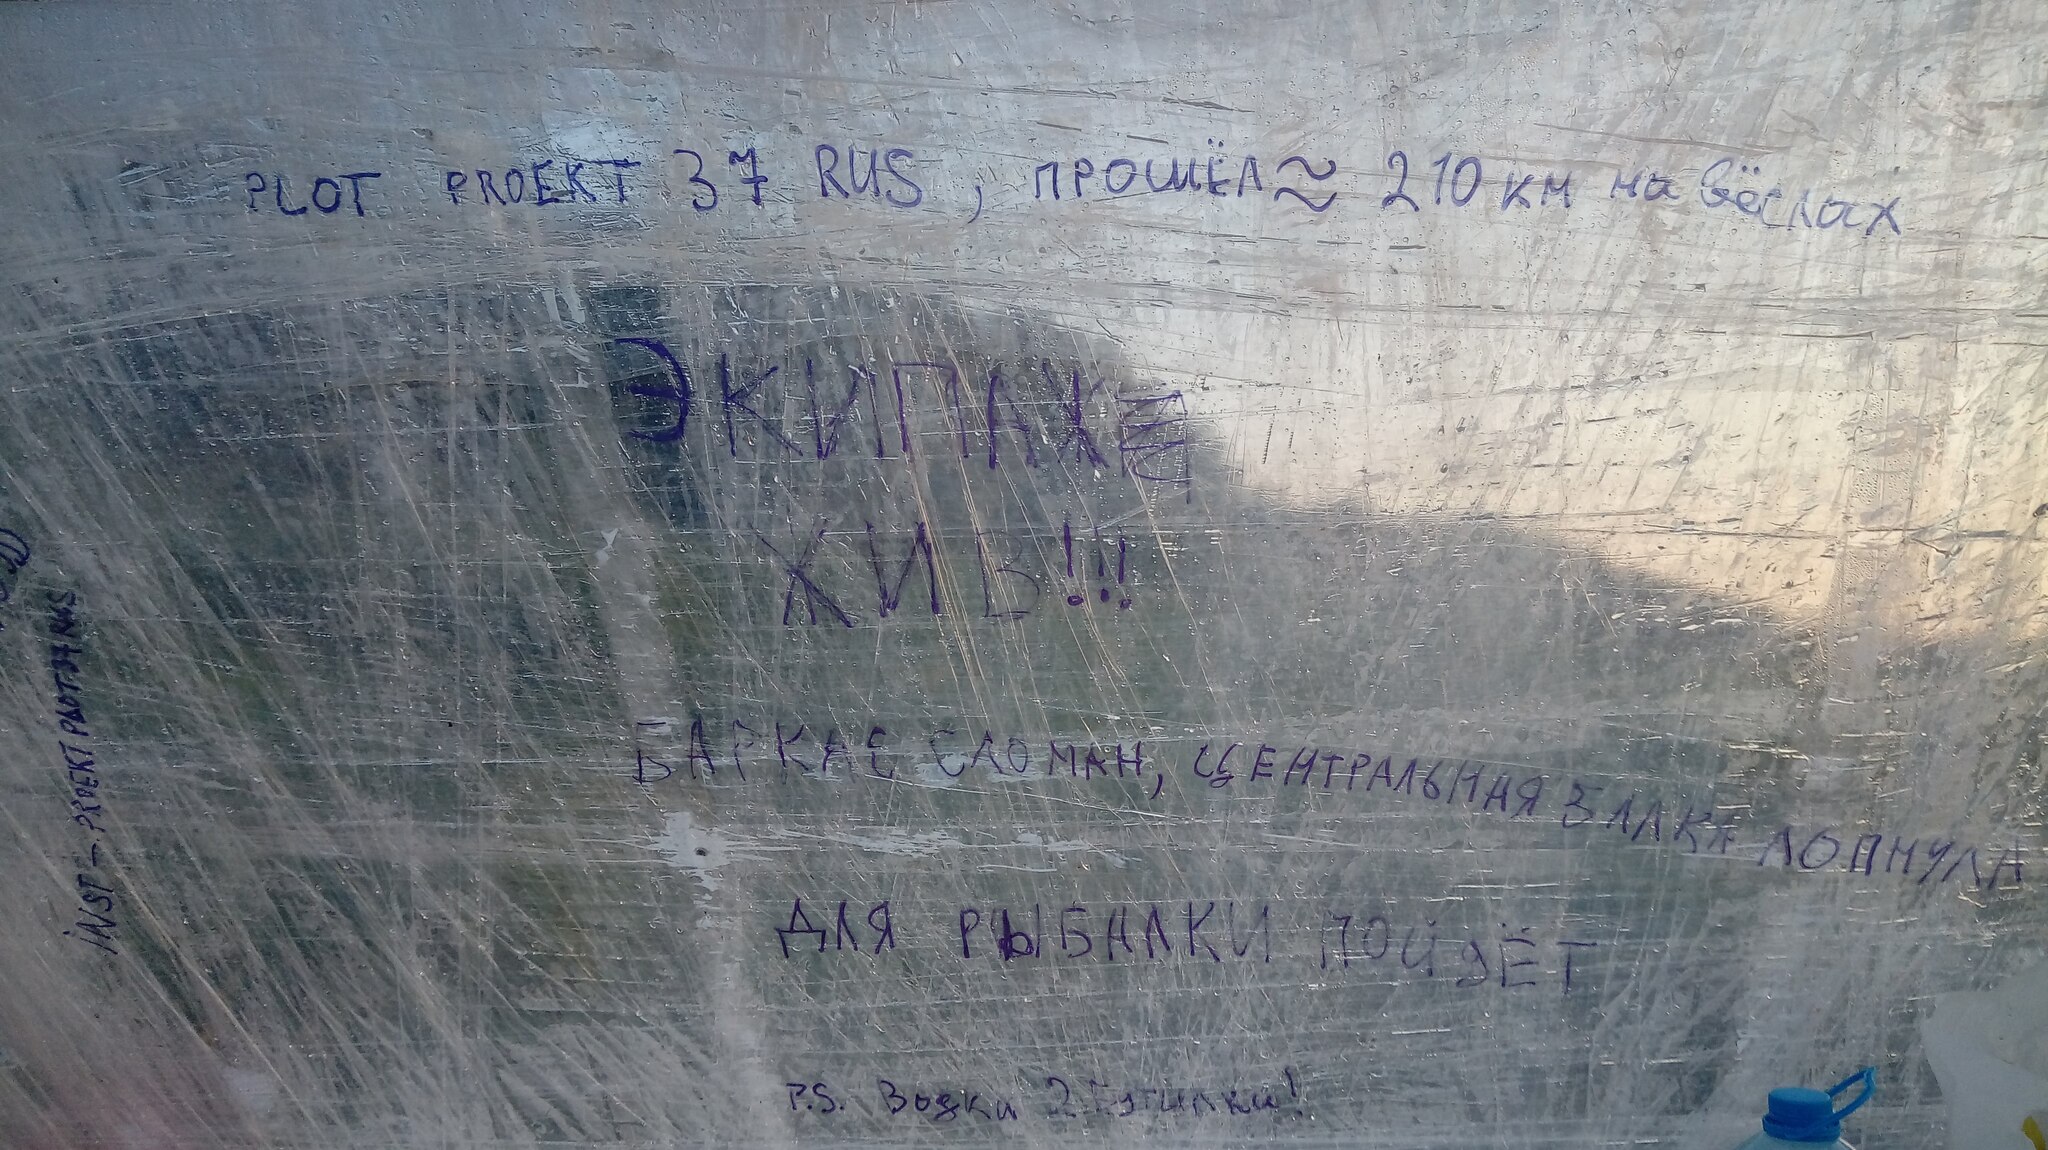 PLOT PROEKT 37 RUS, ПРОШЁЛ ≈ 210 КМ на вёслах
ЭКИПАЖ
ЖИВ!!!
БАРКАС СЛОМАН, ЦЕНТРАЛЬНАЯ БАЛКА ЛОПНУЛА
ДЛЯ РЫБНАЛКИ ПОЙДЁТ
P.S. Водки 2 Бутылки!
iNST – PROEKTPLOT37RUS